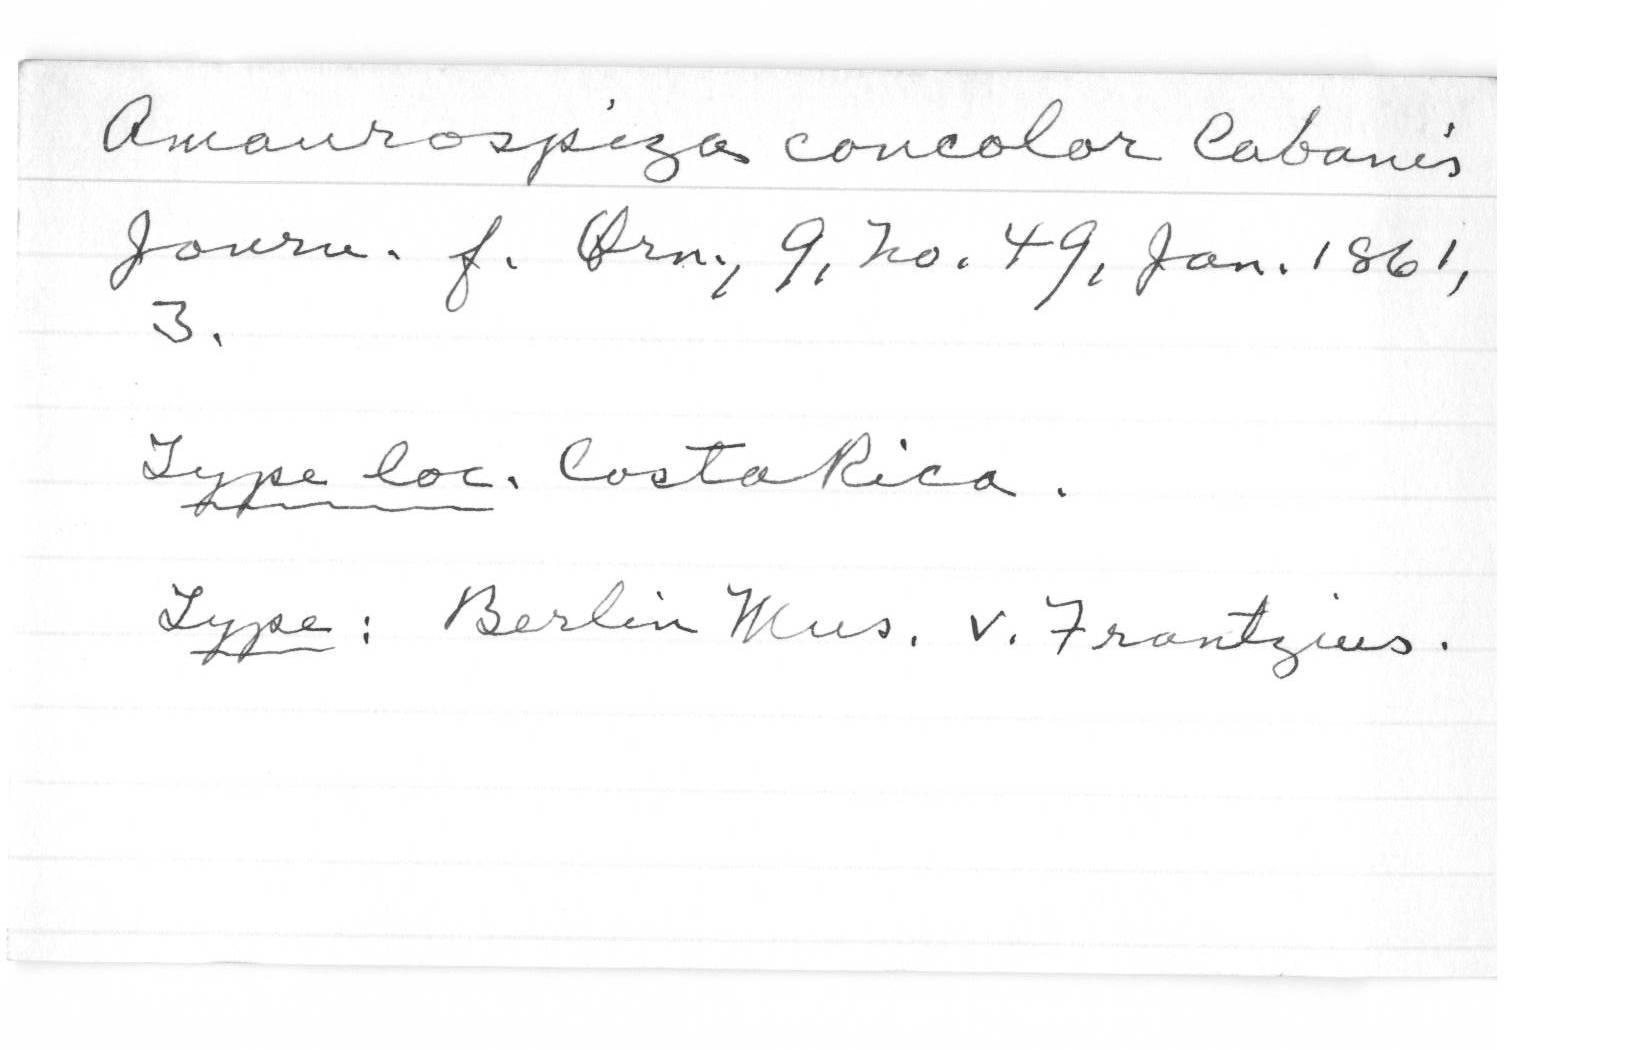 Amaurospiza concolor Cabanis
Journ. f. Orn., 9, no. 49, Jan. 1861,
3.
Type loc. Costa Rica.
Type: Berlin Mus. v. Frantzius.